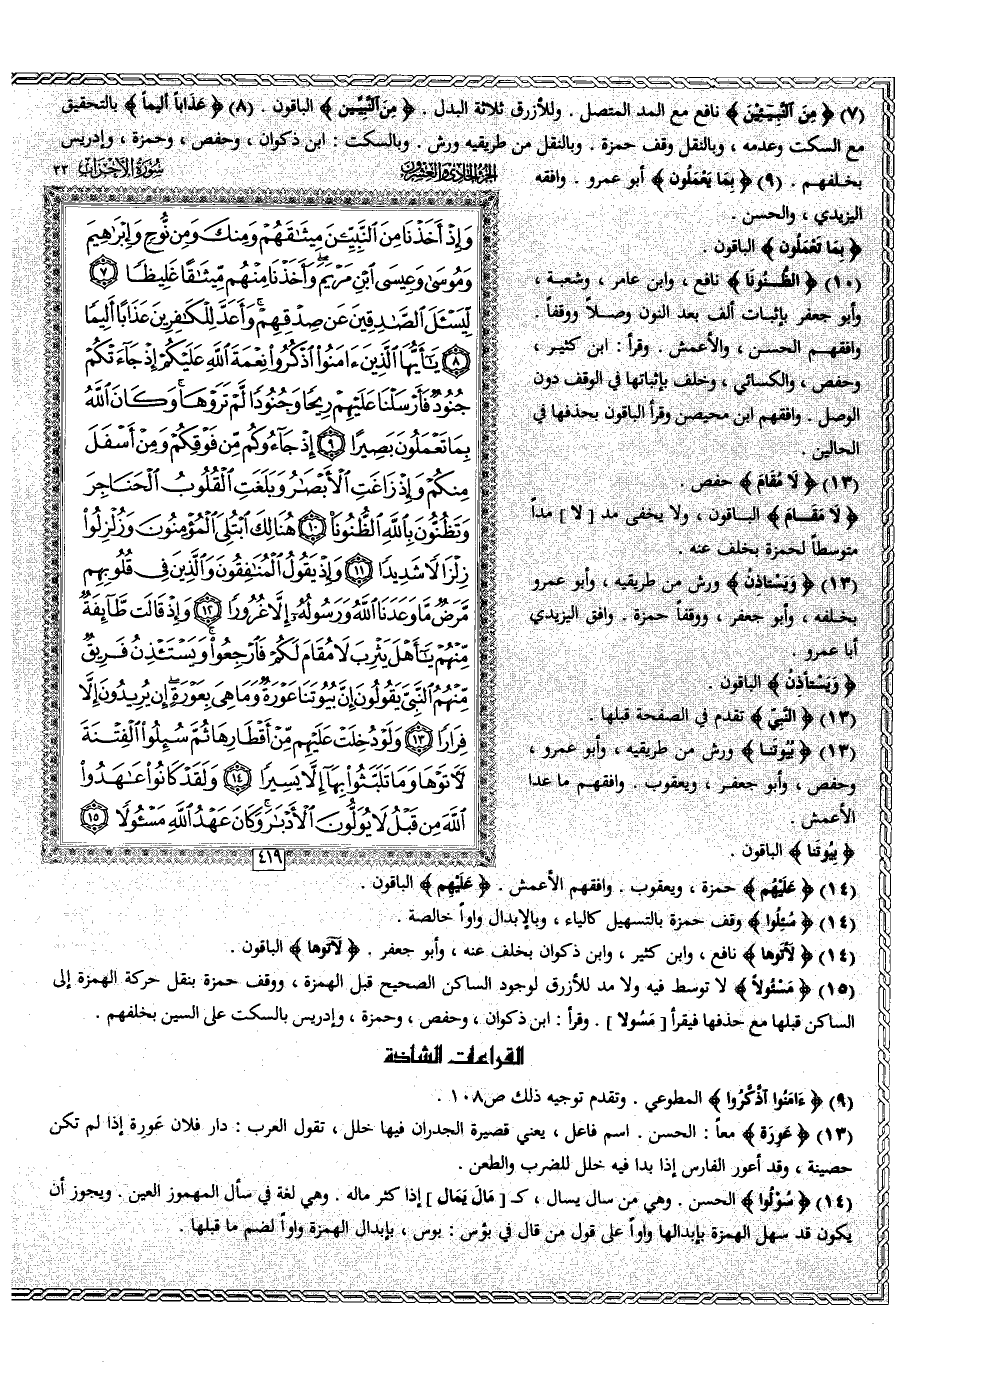 (٧) ﴿ مِنَ ٱلنَّبِيۤـِٔيْنَ ﴾ نافع مع المد المتصل . وللأزرق ثلاثة البدل . ﴿ مِنَ ٱلنَّبِيِّينَ ﴾ الباقون . (٨) ﴿ عَذَاباً أليماً ﴾ بالتحقيق
مع السكت وعدمه ، وبالنقل وقف حمزة . وبالنقل من طريقيه ورش . وبالسكت : ابن ذكوان ، وحفص ، وحمزة ، وإدريس
بخلفهم . (٩) ﴿ بِمَا يَعْمَلُون ﴾ أبو عمرو . وافقه
اليزيدي ، والحسن .
﴿ بِمَا تَعْمَلُون ﴾ الباقون .
(١٠) ﴿ الظُّنُونَا ﴾ نافع ، وابن عامر ، وشعبة ،
وأبو جعفر بإثبات ألف بعد النون وصلاً ووقفاً .
وافقهم الحسن ، والأعمش . وقرأ : ابن كثير ،
وحفص ، والكسائي ، وخلف بإثباتها في الوقف دون
الوصل . وافقهم ابن محيصن وقرأ الباقون بحذفها في
الحالين .
(١٣) ﴿ لَا مُقَامَ ﴾ حفص .
﴿ لَا مَقَامَ ﴾ الباقون ، ولا يخفى مد [ لا ] مداً
متوسطاً لحمزة بخلف عنه .
(١٣) ﴿ وَيَسْتَاذِنُ ﴾ ورش من طريقيه ، وأبو عمرو
بخلفه ، وأبو جعفر ، ووقفاً حمزة . وافق اليزيدي
أبا عمرو .
﴿ وَيَسْتَأذنُ ﴾ الباقون .
(١٣) ﴿ النَّبِيّ ﴾ تقدم في الصفحة قبلها .
(١٣) ﴿ بُيُوتَنا ﴾ ورش من طريقيه ، وأبو عمرو ،
وحفص ، وأبو جعفر ، ويعقوب . وافقهم ما عدا
الأعمش .
﴿ بِيُوتَنا ﴾ الباقون .
سُورَةُ الأَحْزَاب ٣٣
الجزء الحادي والعشرون
وَإِذْ أَخَذْنَا مِنَ ٱلنَّبِيِّـۧنَ مِيثَٰقَهُمْ وَمِنكَ وَمِن نُّوحٍ وَإِبْرَٰهِيمَ
وَمُوسَىٰ وَعِيسَى ٱبْنِ مَرْيَمَ ۖ وَأَخَذْنَا مِنْهُم مِّيثَٰقًا غَلِيظًا ٧
لِّيَسْـَٔلَ ٱلصَّٰدِقِينَ عَن صِدْقِهِمْ ۚ وَأَعَدَّ لِلْكَٰفِرِينَ عَذَابًا أَلِيمًا
٨ يَٰٓأَيُّهَا ٱلَّذِينَ ءَامَنُوا۟ ٱذْكُرُوا۟ نِعْمَةَ ٱللَّهِ عَلَيْكُمْ إِذْ جَآءَتْكُمْ
جُنُودٌ فَأَرْسَلْنَا عَلَيْهِمْ رِيحًا وَجُنُودًا لَّمْ تَرَوْهَا ۚ وَكَانَ ٱللَّهُ
بِمَا تَعْمَلُونَ بَصِيرًا ٩ إِذْ جَآءُوكُم مِّن فَوْقِكُمْ وَمِنْ أَسْفَلَ
مِنكُمْ وَإِذْ زَاغَتِ ٱلْأَبْصَٰرُ وَبَلَغَتِ ٱلْقُلُوبُ ٱلْحَنَاجِرَ
وَتَظُنُّونَ بِٱللَّهِ ٱلظُّنُونَا۠ ١٠ هُنَالِكَ ٱبْتُلِىَ ٱلْمُؤْمِنُونَ وَزُلْزِلُوا۟
زِلْزَالًا شَدِيدًا ١١ وَإِذْ يَقُولُ ٱلْمُنَٰفِقُونَ وَٱلَّذِينَ فِى قُلُوبِهِم
مَّرَضٌ مَّا وَعَدَنَا ٱللَّهُ وَرَسُولُهُۥٓ إِلَّا غُرُورًا ١٢ وَإِذْ قَالَت طَّآئِفَةٌ
مِّنْهُمْ يَٰٓأَهْلَ يَثْرِبَ لَا مُقَامَ لَكُمْ فَٱرْجِعُوا۟ ۚ وَيَسْتَـْٔذِنُ فَرِيقٌ
مِّنْهُمُ ٱلنَّبِىَّ يَقُولُونَ إِنَّ بُيُوتَنَا عَوْرَةٌ وَمَا هِىَ بِعَوْرَةٍ ۖ إِن يُرِيدُونَ إِلَّا
فِرَارًا ١٣ وَلَوْ دُخِلَتْ عَلَيْهِم مِّنْ أَقْطَارِهَا ثُمَّ سُئِلُوا۟ ٱلْفِتْنَةَ
لَءَاتَوْهَا وَمَا تَلَبَّثُوا۟ بِهَآ إِلَّا يَسِيرًا ١٤ وَلَقَدْ كَانُوا۟ عَٰهَدُوا۟
ٱللَّهَ مِن قَبْلُ لَا يُوَلُّونَ ٱلْأَدْبَٰرَ ۚ وَكَانَ عَهْدُ ٱللَّهِ مَسْـُٔولًا ١٥
٤١٩
(١٤) ﴿ عَلَيْهُم ﴾ حمزة ، ويعقوب . وافقهم الأعمش . ﴿ عَلَيْهِم ﴾ الباقون .
(١٤) ﴿ سُئِلُوا ﴾ وقف حمزة بالتسهيل كالياء ، وبالإبدال واواً خالصة .
(١٤) ﴿ لَأَتَوها ﴾ نافع ، وابن كثير ، وابن ذكوان بخلف عنه ، وأبو جعفر . ﴿ لَآتَوها ﴾ الباقون .
(١٥) ﴿ مَسْئُولاً ﴾ لا توسط فيه ولا مد للأزرق لوجود الساكن الصحيح قبل الهمزة ، ووقف حمزة بنقل حركة الهمزة إلى
الساكن قبلها مع حذفها فيقرأ [ مَسُولا ] . وقرأ : ابن ذكوان ، وحفص ، وحمزة ، وإدريس بالسكت على السين بخلفهم .
القراءات الشاذة
(٩) ﴿ ءَامَنُوا ٱذَّكَّرُوا ﴾ المطوعي . وتقدم توجيه ذلك ص١٠٨ .
(١٣) ﴿ عَوِرَة ﴾ معاً : الحسن . اسم فاعل ، يعني قصيرة الجدران فيها خلل ، تقول العرب : دار فلان عَورِة إذا لم تكن
حصينة ، وقد أعور الفارس إذا بدا فيه خلل للضرب والطعن .
(١٤) ﴿ سُوْلُوا ﴾ الحسن . وهي من سال يسال ، كـ [ مَالَ يَمَال ] إذا كثر ماله . وهي لغة في سأل المهموز العين . ويجوز أن
يكون قد سهل الهمزة بإبدالها واواً على قول من قال في بؤس : بوس ، بإبدال الهمزة واواً لضم ما قبلها .